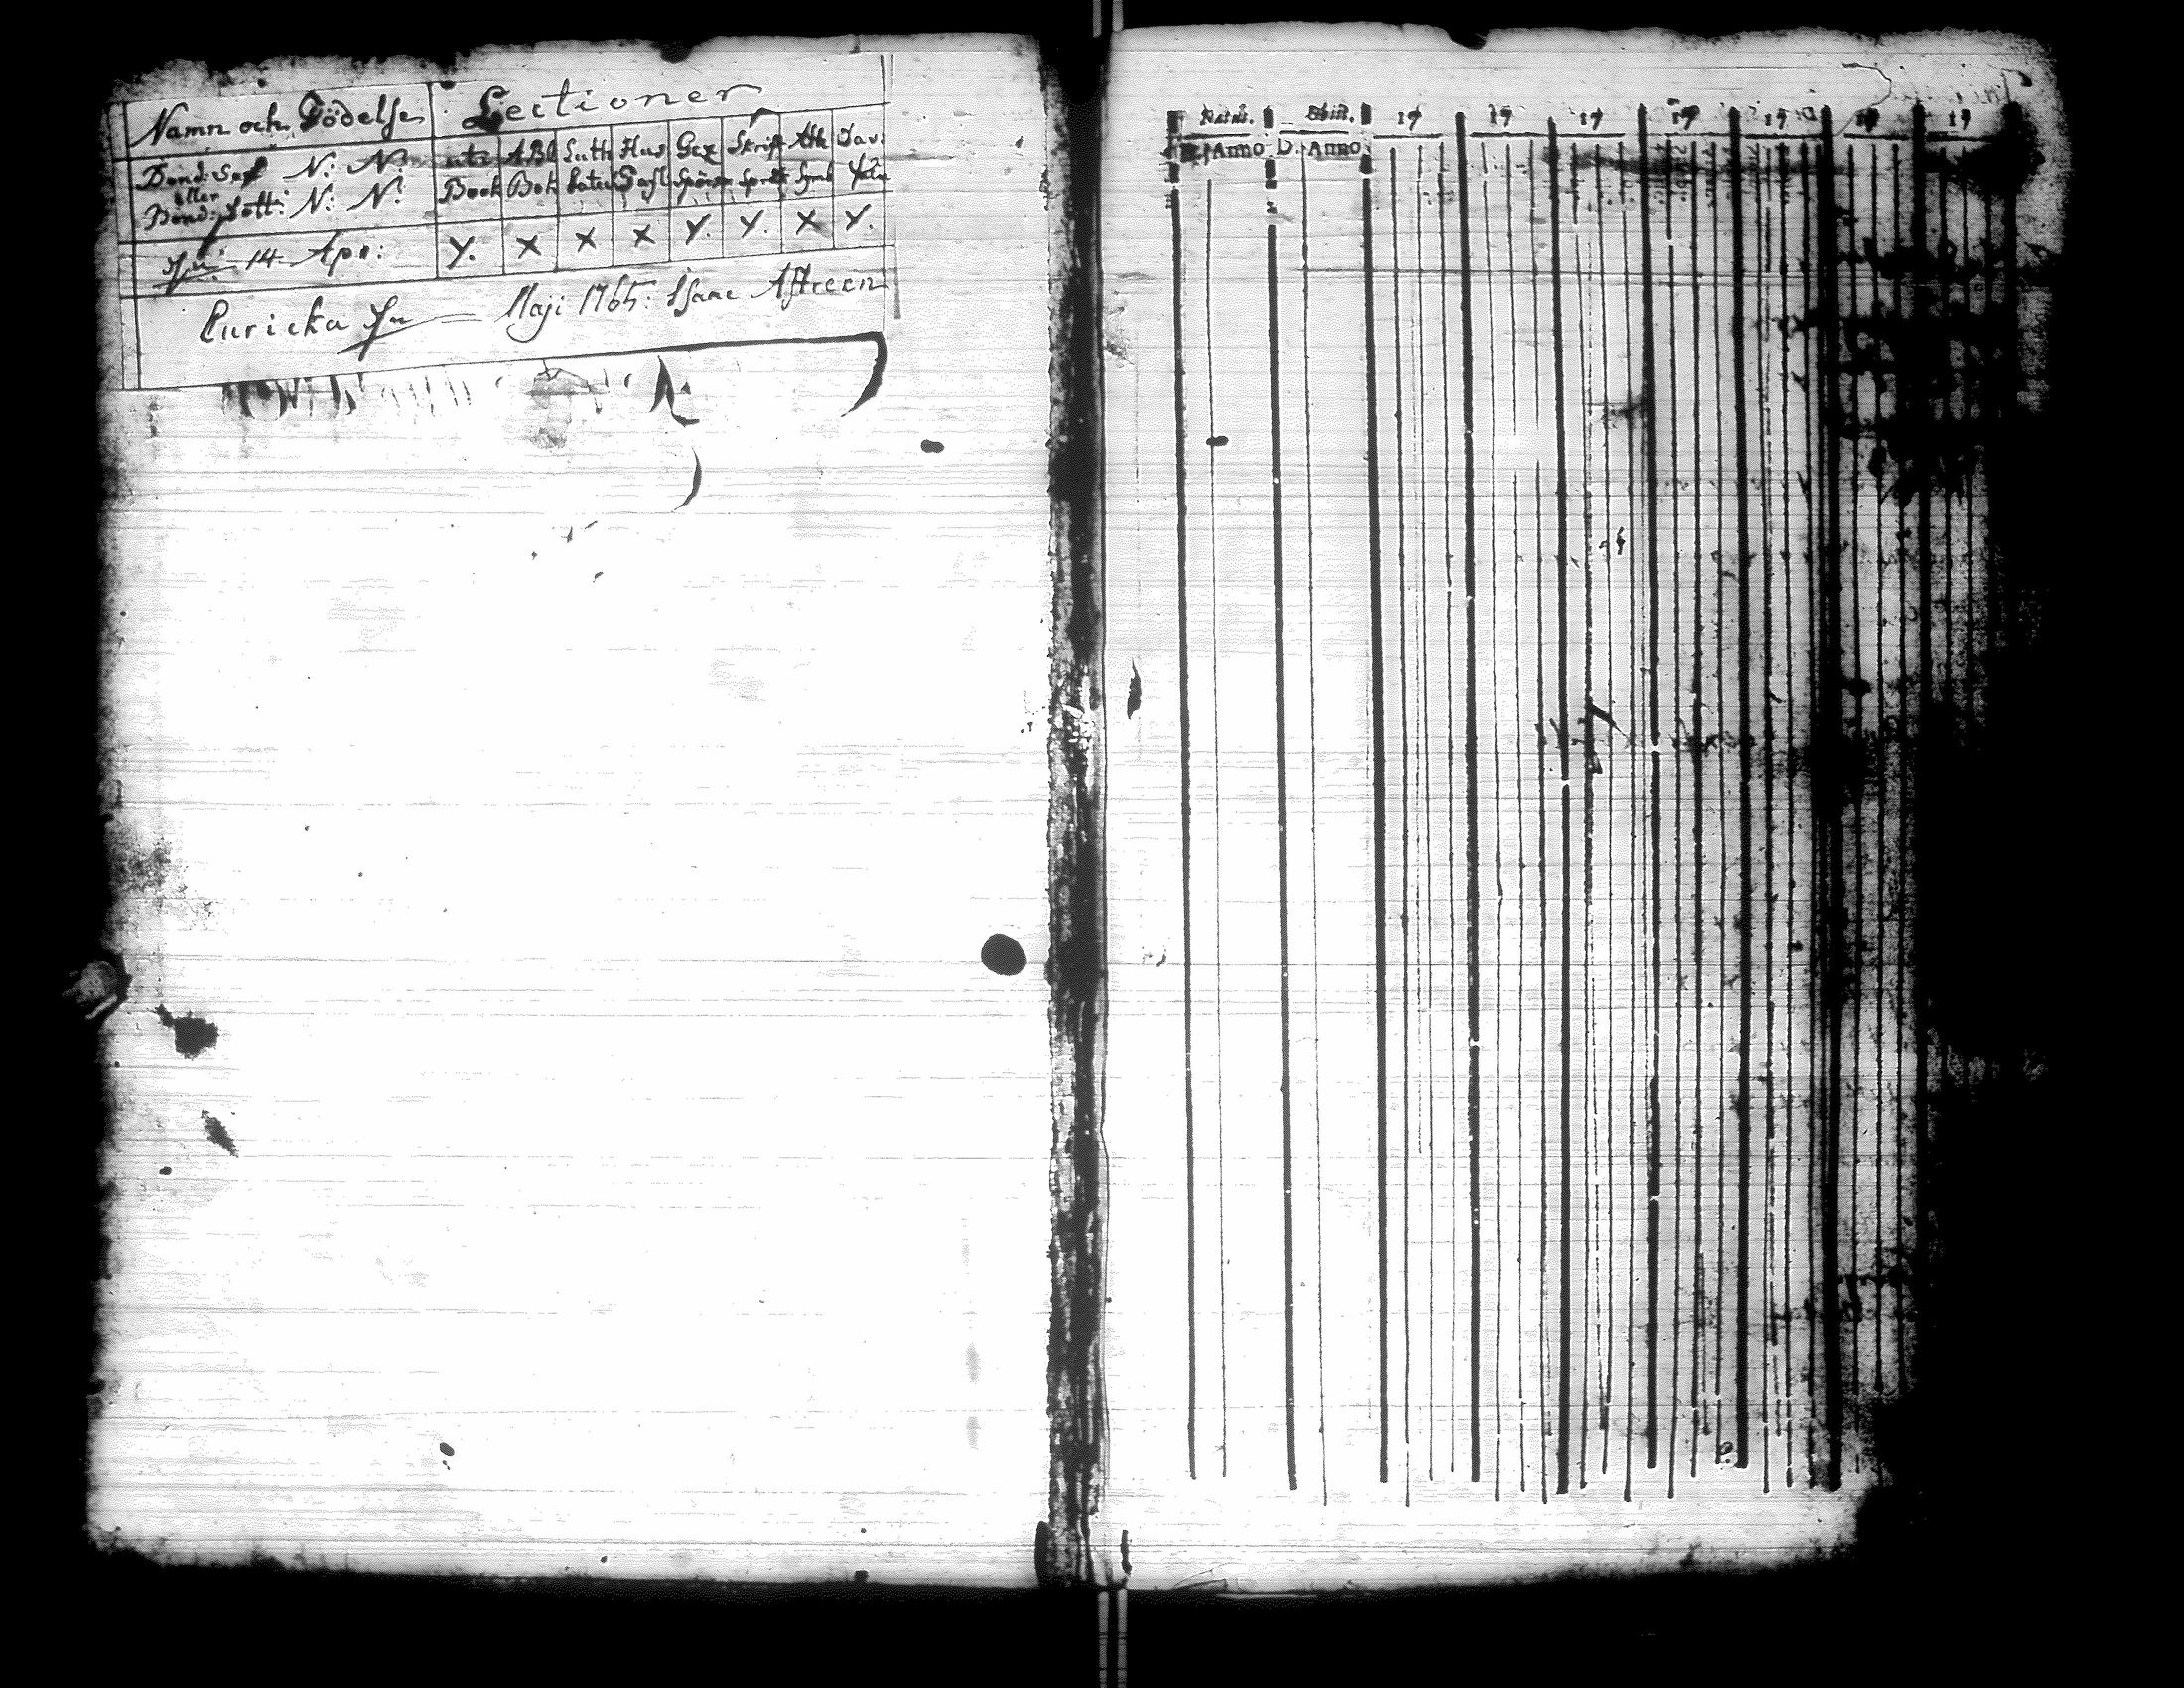 Namn och Födelse Lectioner
Bond: Son N: N: ABC Luth Hus Gez Skrift Ath Dav:
eller
Bond: Dott: N: N: Book Bok Catec Tafl Spörsm Språk Symb Psalm
14 Apr: Y. X X X Y. Y. X Y.
Maji 1765: Isaac
Natus. Obiit. 17 17 17 17 17 17 17
Anno D. Anno